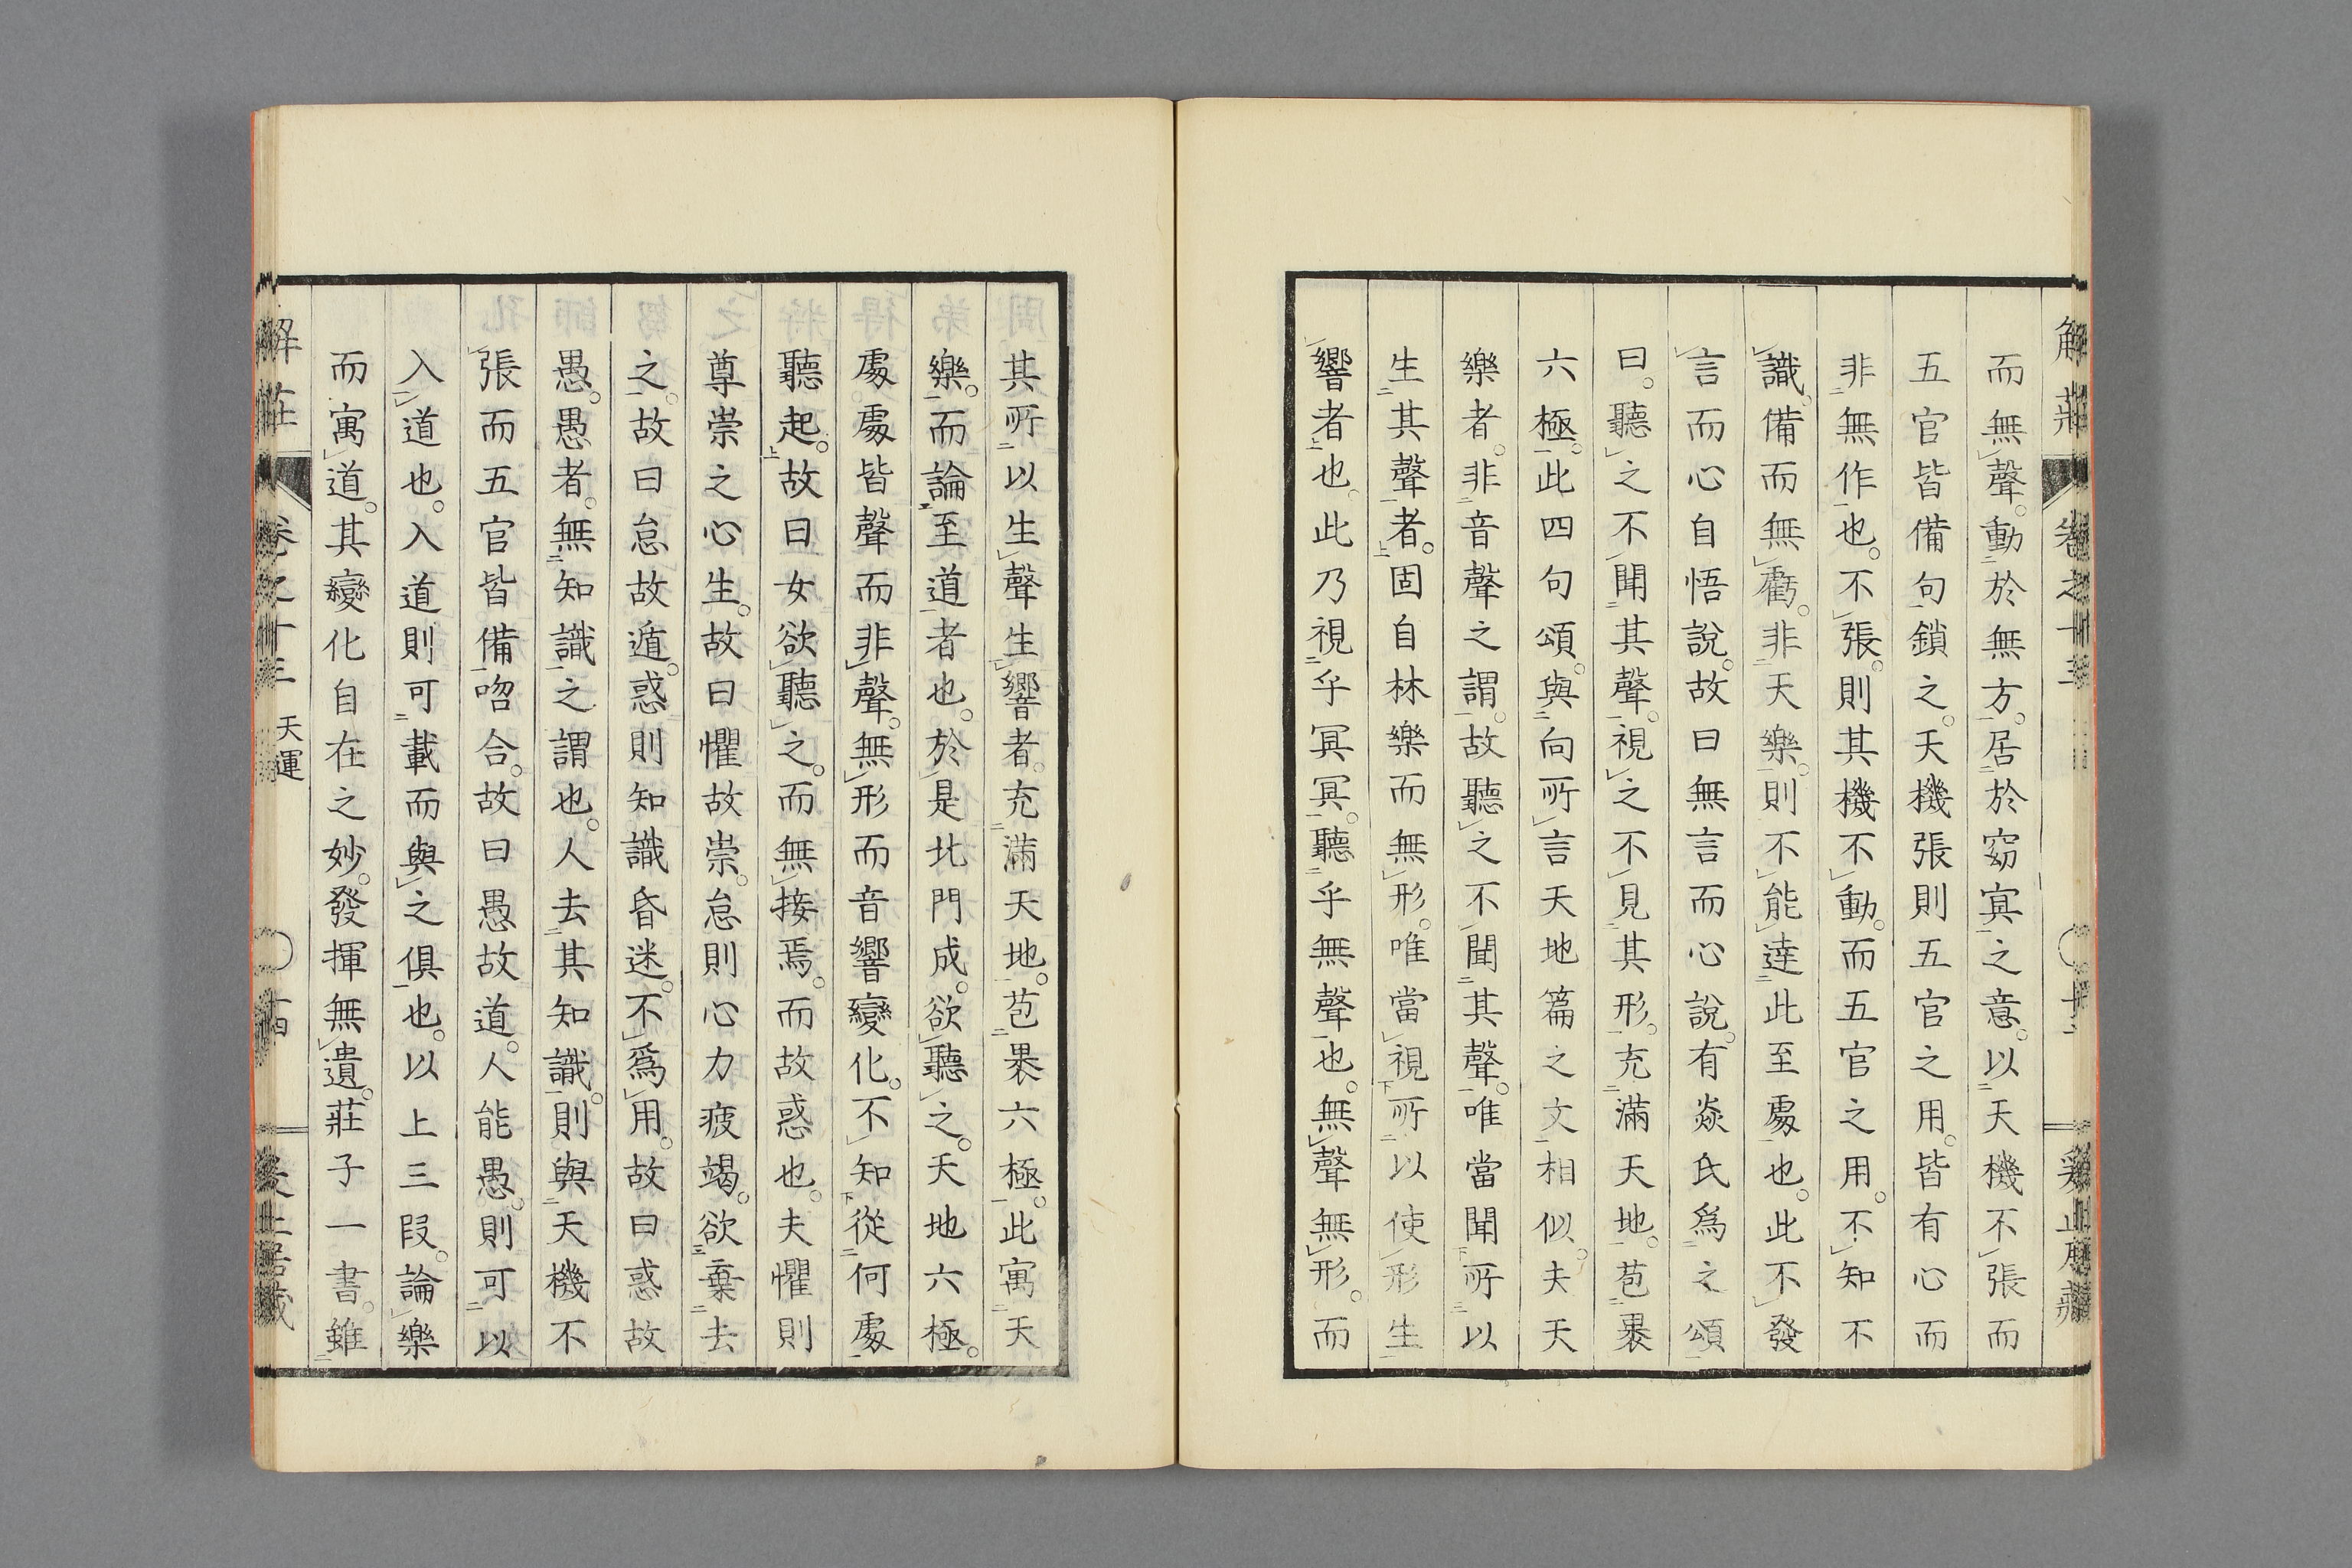 而無聲。動於無方。居於窈冥之意。以天機不張而
五官皆備句鎖之。天機張則五官之用。皆有心而
非無作也。不張。則其機不動。而五官之用。不知不
識。備而無虧。非天樂。則不能達此至處也。此不發
言而心自悟說。故曰無言而心說。有焱氏爲之頌
曰。聽之不聞其聲。視之不見其形。充滿天地。苞褁
六極。此四句頌。與向所言天地篇之文相似。夫天
樂者。非音聲之謂。故聽之不聞其聲。唯當聞所以
生其聲者。固自林樂而無形。唯當視所以使形生
響者也。此乃視乎冥冥。聽乎無聲也。無聲無形。而
其所以生聲生響者。充滿天地。苞褁六極。此寓天
樂。而論至道者也。於是北門成。欲聽之。天地六極。
處處皆聲而非聲。無形而音響變化。不知從何處
聽起。故曰女欲聽之。而無接焉。而故惑也。夫懼則
尊崇之心生。故曰懼故崇。怠則心力疲竭。欲棄去
之。故曰怠故遁。惑則知識昏迷。不爲用。故曰惑故
愚。愚者。無知識之謂也。人去其知識。則與天機不
張而五官皆備吻合。故曰愚故道。人能愚。則可以
入道也。入道則可載而與之俱也。以上三段。論樂
而寓道。其變化自在之妙。發揮無遺。莊子一書。雖
解莊
卷之十三
天運